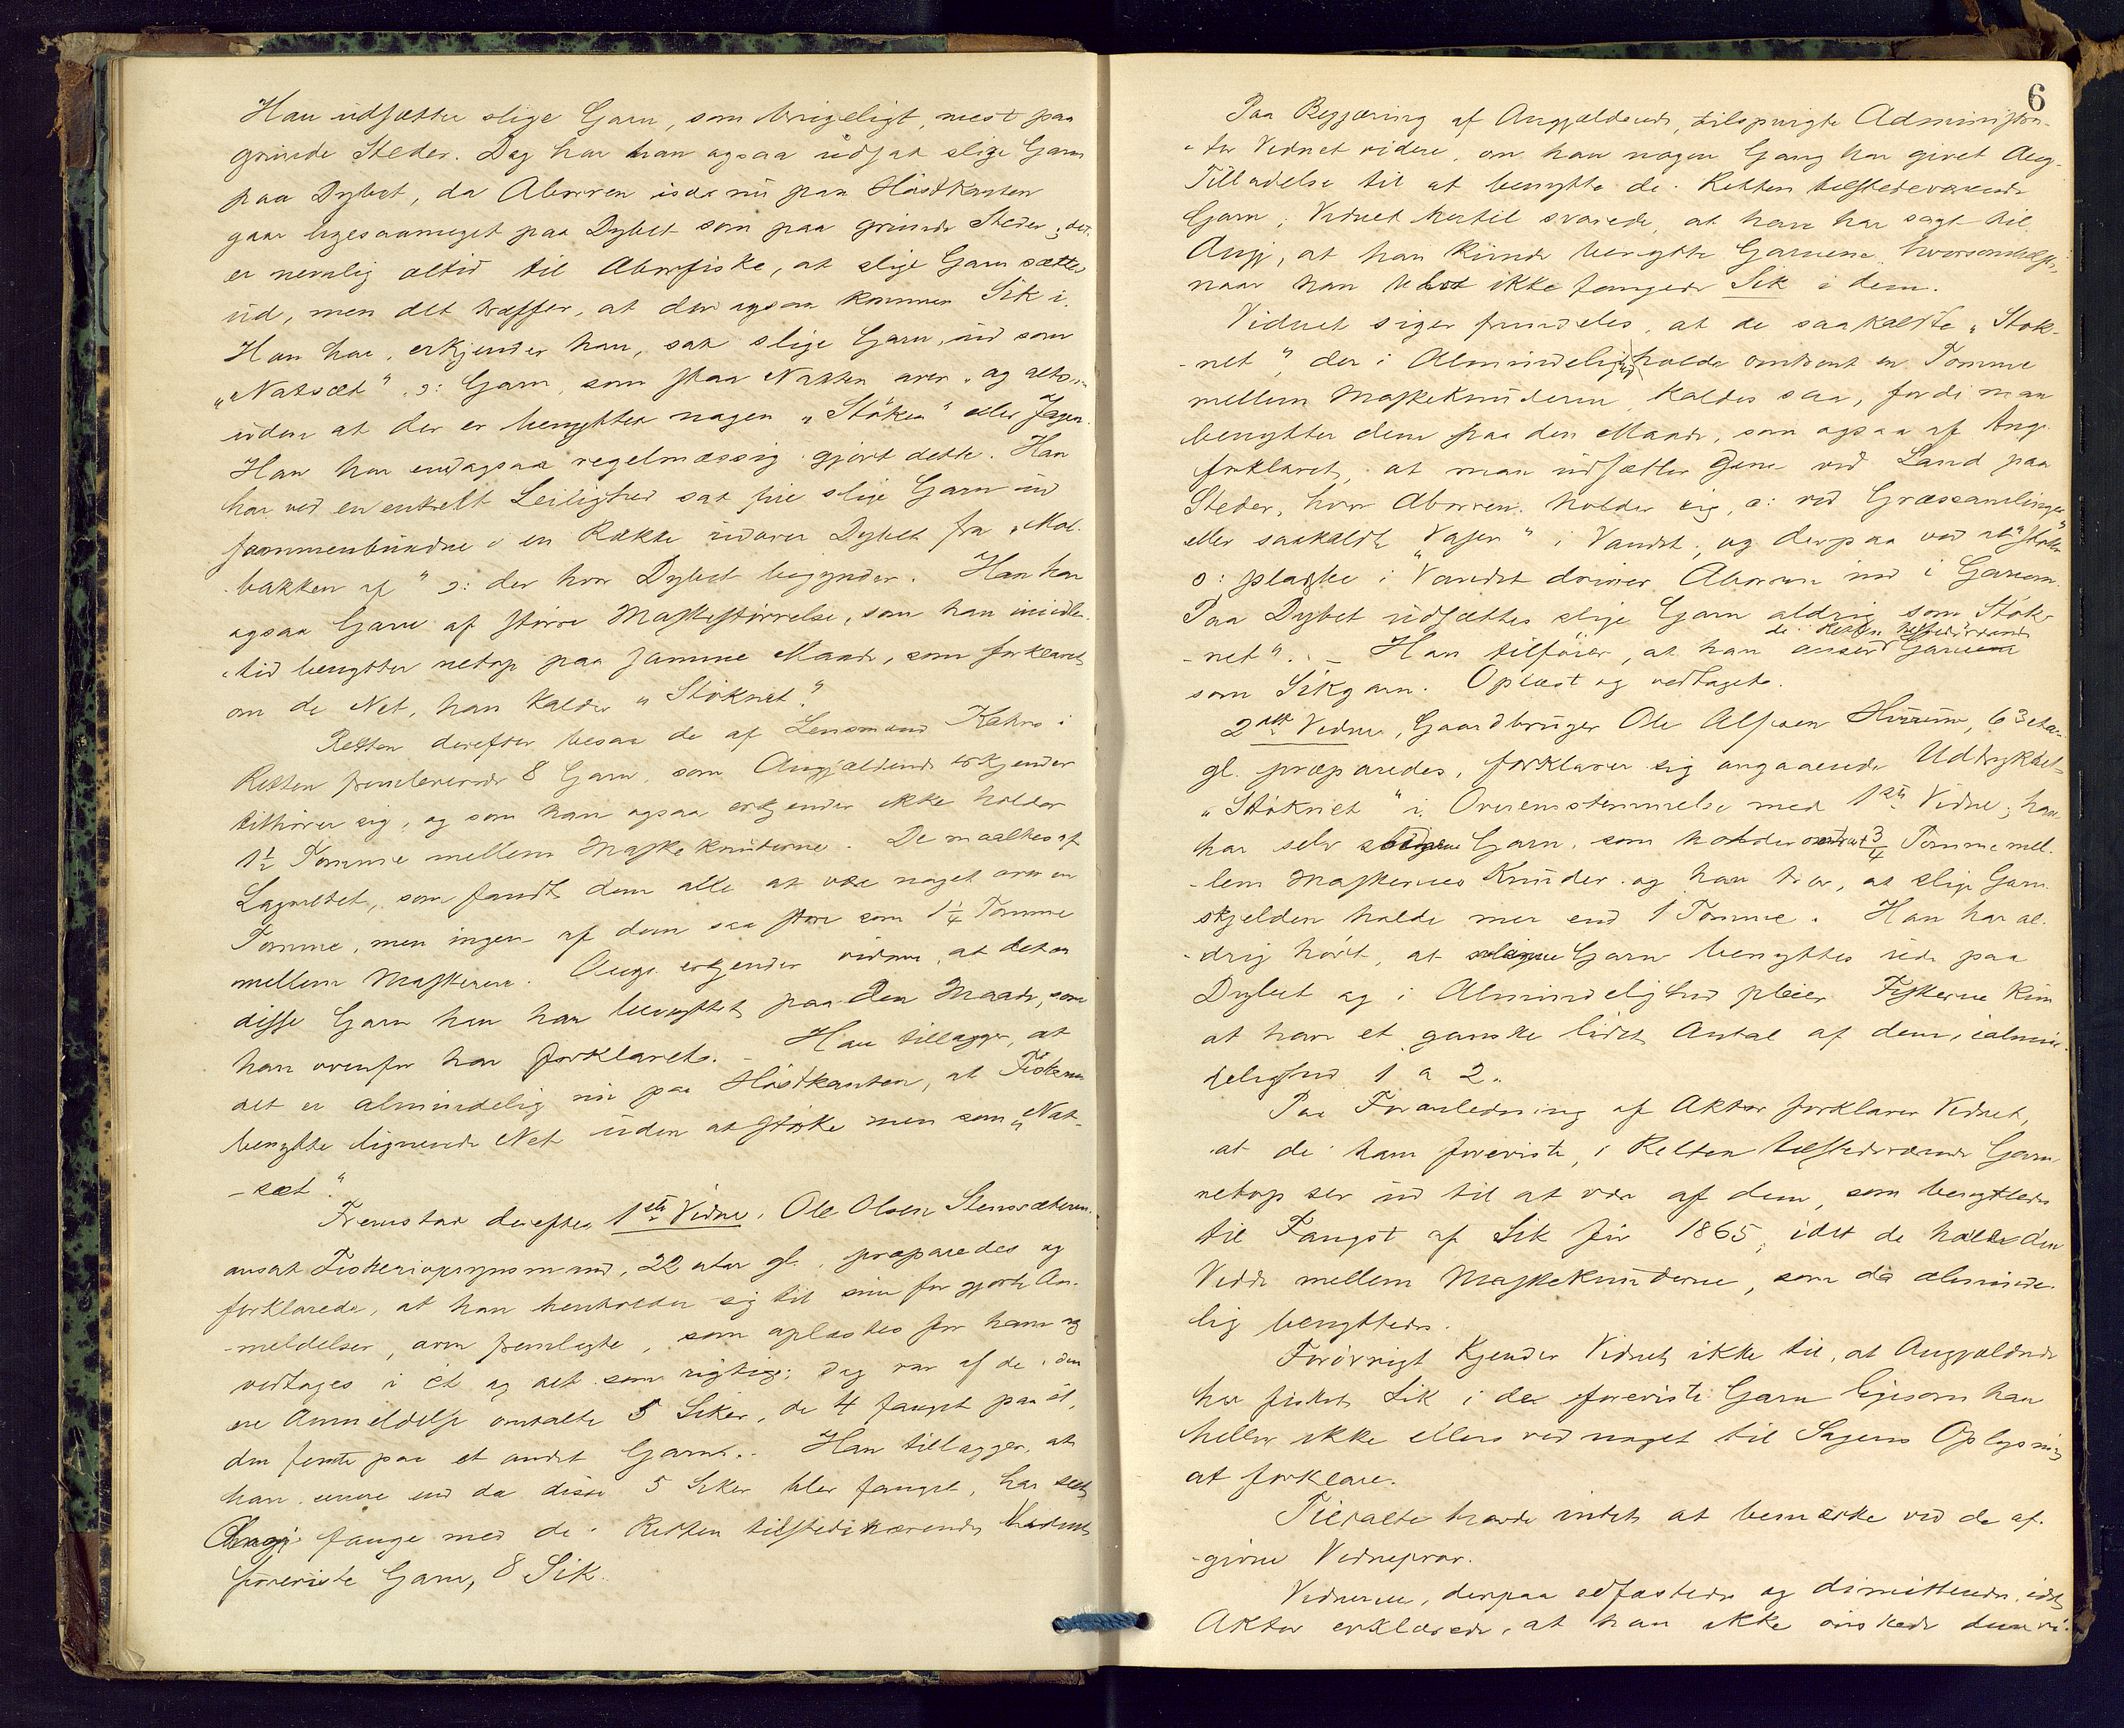 Han udsætter slige Garn, som brigeligt, mest paa
grunde Steder. Dog har han ogsaa udsat slige Garn
paa Dybet, da Aborren især nu paa Høstkanten
gaar ligesaameget paa Dybet som paa grunde Steder; det
er nemlig altid til Aborfiske, at slige Garn sættes
ud, men det træffer, at der ogsaa kommer Sik i.
Han har, erkjender han, sat slige Garn ud som
"Natsæt" ɔ: Garn, som staar Natten over, og altsaa
uden at der er benyttet nogen "Støken" eller Jagen.
Han har endogsaa regelmæssig gjort dette. Han
har ved en enkelt Leilighed sat fire slige Garn ud
sammenbundne i en Række udover Dybet fra "Mal-
bakken af" ɔ: der hvor Dybet begynder. Han har
ogsaa Garn af større Maskestørrelse, som han imidler-
-tid benytter netop paa samme Maade, som forklaret
om de Net, han kalder "Støknet".
Retten derefter besaa de af Lensmand Kahrs i
Retten fremleverede 8 Garn, som Angjældende erkjender
tilhører sig, og som han ogsaa erkjender ikke holder
1½ Tomme mellem Maskeknuderne. De maaltes af
Lagrettet, som fandt dem alle at være noget over en
Tomme, men ingen af dem saa store som 1¼ Tomme
mellem Maskerne. Angj. erkjender videre, at det er
disse Garn han har benyttet paa den Maade, som
han ovenfor har forklaret. - Han tillægger, at
det er almindelig nu paa Høstkanten, at Fiskerne
benytte lignende Net uden at støke men som "Nat-
-sæt".
Fremstod derefter 1ste Vidne, Ole Olsen Stensæteren,
ansat Fiskeriopsynsmand, 22 aar gl., præparedes og
forklarede, at han henholder sig til sin før gjorte An-
-meldelser, ovenfremlagte, som oplæstes for ham og
vedtages i Et og alt som rigtige; dog var af de i den
ene Anmeldelse omtalte 5 Siker, de 4 fanget paa ét,
den femte paa et andet Garn. - Han tillægger, at
han, senere end da disse 5 Siker blev fanget, har seet
Angj. fange med de i Retten tilstedeværende Vidnet
foreviste Garn, 8 Sik.
6
Paa Begjæring af Angjældende, tilspurgte Administra-
-tor Vidnet videre, om han nogen Gang har givet Ang.
Tilladelse til at benytte de i Retten tilstedeværende
Garn; Vidnet hertil svarede, at han har sagt til
Angj., at han kunde benytte Garnene, hvorsomhelst,
naar han blot ikke fangede Sik i dem.
Vidnet siger fremdeles, at de saakaldte "Støk-
-net", der i Almindelighed holde omtrent en Tomme
mellem Maskeknuderne, kaldes saa, fordi man
benytter dem paa den Maade, som ogsaa af Ang.
forklaret, at man udsætter dem ved Land paa
Steder, hvor Aborren holder sig, ɔ: ved Græssamlinger
eller saakaldte "Vaser" i Vandet, og derpaa ved at "støke"
ɔ: plaske i Vandet driver Aborren ind i Garnene.
Paa Dybet udsættes slige Garn aldrig som "Støk-
-net". - Han tilføier, at han anser de i Retten tilstedeværende Garnene
som Sikgarn. Oplæst og vedtaget.
2det Vidne, Gaardbruger Ole Alfsen Hurum, 63 aar
gl. præparedes, forklarer sig angaaende Udtrykket
"Støknet" i Overensstemmelse med 1ste Vidne; han
har selv slige Garn, som holder omtrent ¾ Tomme mel-
-lem Maskernes Knuder og han tror, at slige Garn
skjelden holde mer end 1 Tomme. Han har al-
-drig hørt, at slige Garn benyttes ude paa
Dybet og i Almindelighed pleier Fiskerne kun
at have et ganske lidet Antal af dem, i almin-
delighed 1 a 2.
Paa Foranledning af Aktor forklarer Vidnet,
at de ham foreviste, i Retten tilstedeværende Garn
netop ser ud til at være af dem, som benyttedes
til Fangst af Sik før 1865, idet de holder den
Vidde mellem Maskeknuderne, som da alminde-
lig benyttedes.
Forøvrigt kjender Vidnet ikke til, at Angjældende
har fisket Sik i de foreviste Garn ligesom han
heller ikke ellers ved noget til Sagens Oplysning
at forklare.
Tiltalte havde intet at bemærke ved de af-
-givne Vidneprov.
Vidnerne, derpaa edfæstede og dimitterede, idet
Aktor erklærede, at han ikke ønskede dem vi-